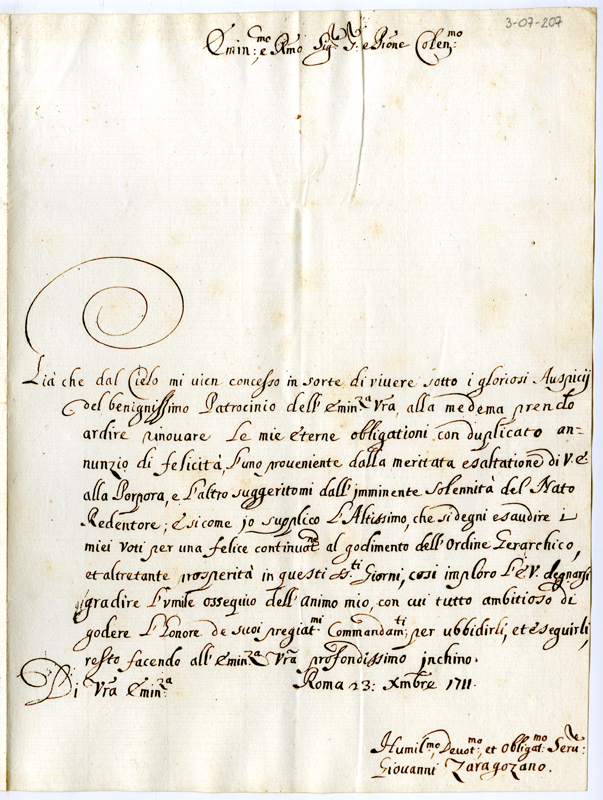 3-07-207
Emin:mo e Rmo Sig.re S.r e Pñone Colen:mo
Già che dal Cielo mi vien concesso in sorte di viuere sotto i gloriosi Auspicij
del benignissimo Patrocinio dell' Emin.za Vra, alla medema prendo
ardire rinouare le mie eterne obligationi con duplicato an-
nunzio di felicità, l'uno proveniente dalla meritata esaltatione di V.E.
alla Porpora, e l'altro suggeritomi dall' imminente solennità del Nato
Redentore; e si come jo supplico l'Altissimo, che si degni esaudire i
miei voti per una felice continuat.ne al godimento dell' Ordine Gerarchico,
et altretante prosperità in questi S.ti Giorni, cosi imploro l'E.V. degnarsi
gradire l'vmile ossequio dell' animo mio, con cui tutto ambitioso di
godere l'honore de suoi pregiat.mi Commandam:ti per ubbidirli, et eseguirli,
resto facendo all' Emin.za Vra profondissimo jnchino.
Di Vra Emin:za Roma 23: Xmbre 1711.
Humil.mo Deuot:mo, et Obligat:mo Seru:re
Giovanni Zaragozano.